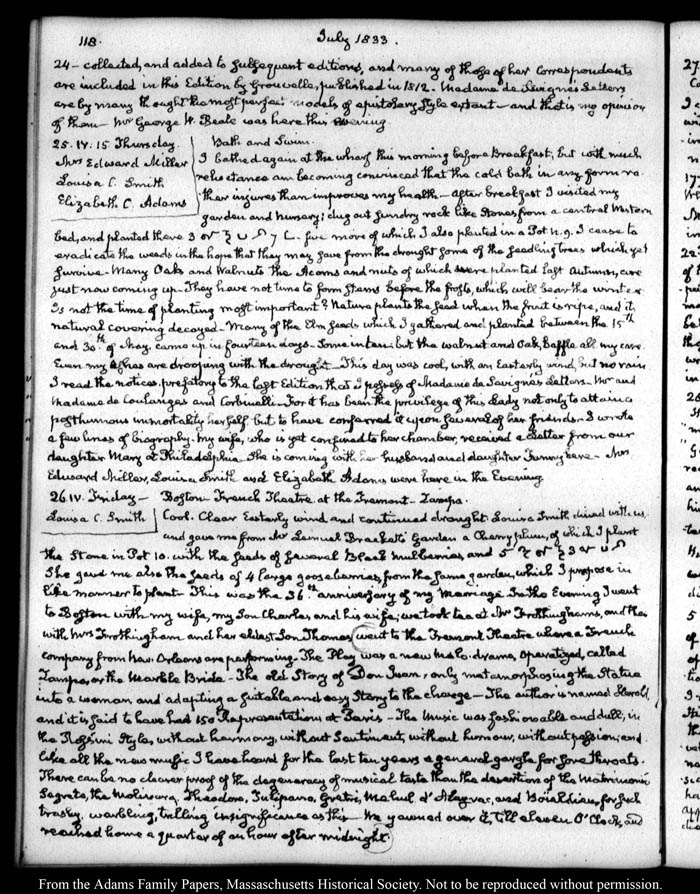 118.
July 1833.
24 - collected, and added to subsequent editions, and many of those of her correspondents
are included in this Edition by Grouvelle, published in 1812. Madame de Sévigné's Letters
are by many thought the most perfect models of epistolary style extant - and that is my opinion
of them - Mr George W. Beale was here this evening.
25. IV. 15 Thursday. Bath and Swim.
Mrs Edward Miller
Louisa C. Smith
Elizabeth C. Adams
I bathed again at the wharf this morning before Breakfast; but with much
reluctance am becoming convinced that the cold bath in any form ra-
ther injures than improves my health - after breakfast I visited my
garden and nursery; dug out sundry rock like stones from a central Western
bed, and planted there 3 five more of which I also planted in a Pot N. 9. I cease to
eradicate the weeds in the hope that they may save from the drought some of the seedling trees which yet
survive - Many Oaks and Walnuts the Acorns and nuts of which were planted last Autumn, are
just now coming up - They have not time to form stems before the frosts, which will bear the winter
Is not the time of planting most important? Nature plants the seed when the fruit is ripe, and its
natural covering decayed - Many of the Elm seeds which I gathered and planted between the 15th
and 30th of May, came up in fourteen days - Some in ten; but the walnut and Oak, baffle all my care
Even my ashes are drooping with the drought - This day was cool, with an Easterly wind, but no rain
I read the notices prefatory to the last Edition that I possess of Madame de Sévigné's Letters - Mr and
Madame de Coulanges and Corbinelli - For it has been the privilege of this Lady not only to attain a
posthumous immortality herself, but to have conferred it upon several of her friends - I wrote
a few lines of biography. My wife, who is yet confined to her chamber, received a Letter from our
daughter Mary at Philadelphia. She is coming with her husband and daughter Fanny here - Mrs
Edward Miller, Louisa Smith and Elizabeth Adams were here in the Evening.
26. IV. Friday - Boston - French Theatre at the Tremont - Zampa.
Louisa C. Smith
Cool. Clear Easterly wind and continued drought. Louisa Smith dined with us
and gave me from Mr Samuel Brackett's Garden a Cherry plum, of which I plant
the Stone in Pot 10. with the seeds of several Black mulberries, and 5
She gave me also the seeds of 4 large gooseberries, from the same garden, which I propose in
like manner to plant - This was the 36th anniversary of my Marriage. In the Evening I went
to Boston with my wife, my Son Charles and his wife; we took tea at Mr Frothingham's, and then
with Mrs Frothingham and her eldest Son Thomas, went to the Tremont Theatre where a French
company from New Orleans are performing. The Play was a new Melo-drama, operatized, called
Zampa, or the Marble Bride - The old Story of Don Juan, only metamorphosing the Statue
into a woman and adapting a suitable and easy Story to the change - The author is named Herold
and it is said to have had 150 Representations at Paris - The Music was fashionable and dull; in
the Rossini Style, without harmony, without Sentiment, without humour, without passion; and
like all the new music I have heard for the last ten years a general gargle for sore throats.
There can be no clearer proof of the degeneracy of musical taste than the desertion of the Matrimonio
Segreto, the Molinara, Theodoro, Tulipano, Gretri, Mehul d'Alayrac, and Boieldieu, for such
trashy, warbling, trilling insignificance as this - We yawned over it, till eleven O'Clock, and
reached home a quarter of an hour after midnight.
From the Adams Family Papers, Massachusetts Historical Society. Not to be reproduced without permission.